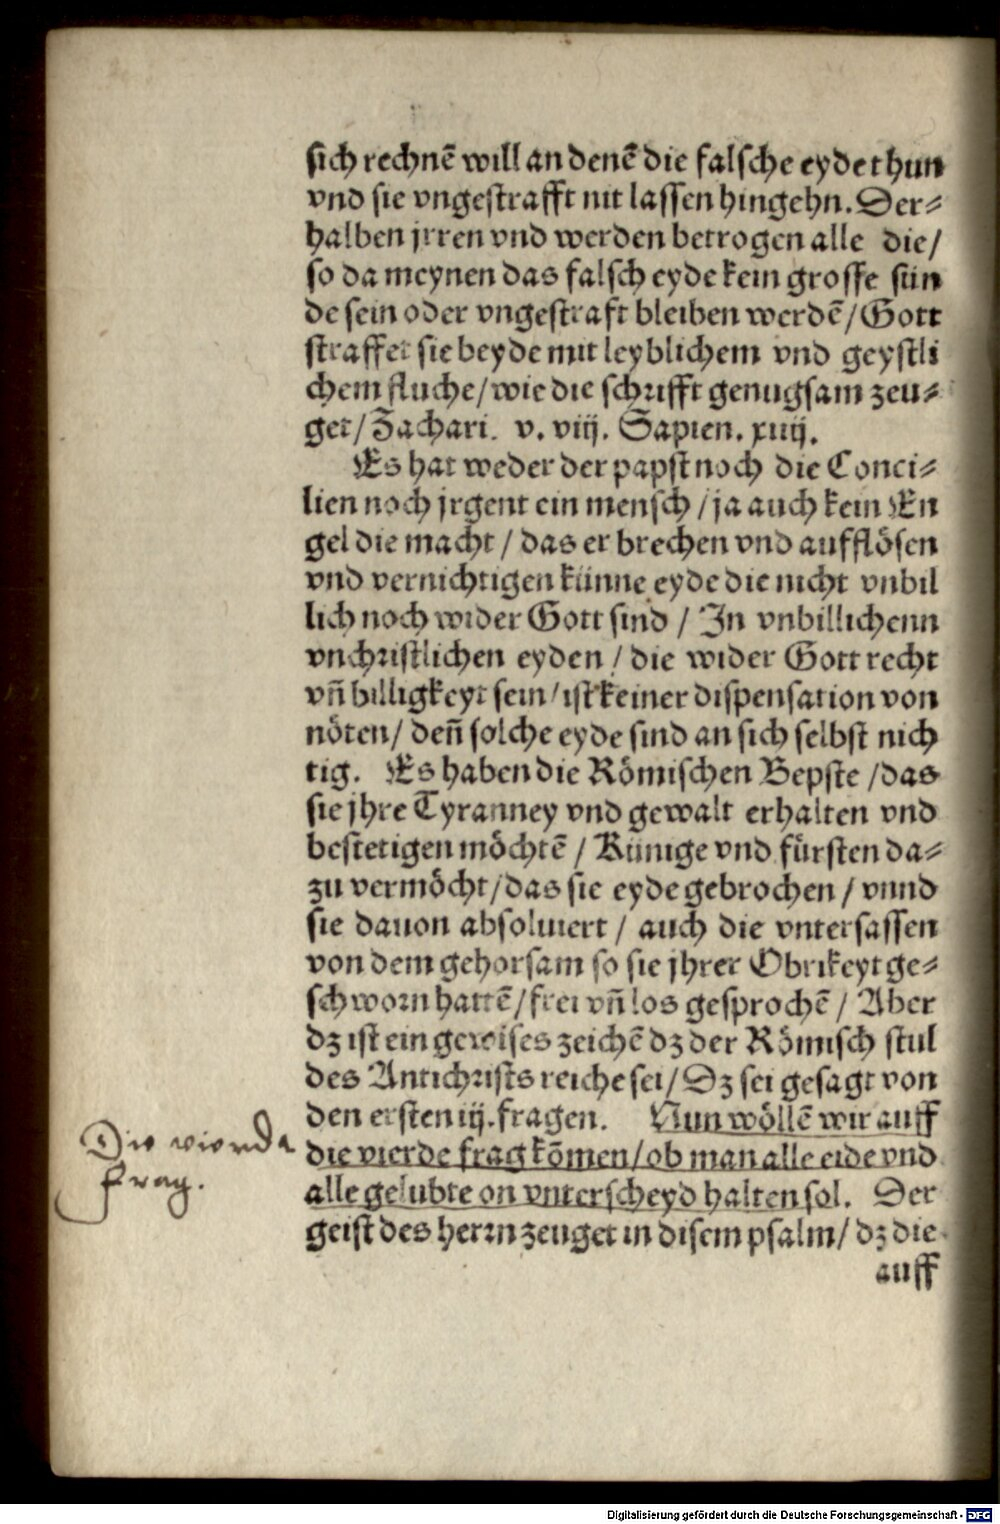 sich rechnē will an denē die falsche eyde thun
vnd sie vngestrafft nit lassen hingehn. Der⸗
halben jrren vnd werden betrogen alle die/
so da meynen das falsch eyde kein grosse sün
de sein oder vngestraft bleiben werdē/Gott
straffet sie beyde mit leyblichem vnd geystli
chem fluche/wie die schrifft genugsam zeu⸗
get/Zachari. v. viij. Sapien. xiiij.
Es hat weder der papst noch die Conci⸗
lien noch jrgent ein mensch/ja auch kein En
gel die macht/das er brechen vnd aufflösen
vnd vernichtigen künne eyde die nicht vnbil
lich noch wider Gott sind/In vnbillichenn
vnchristlichen eyden/die wider Gott recht
vñ billigkeyt sein/ist keiner dispensation von
nöten/deñ solche eyde sind an sich selbst nich
tig. Es haben die Römischen Bepste/das
sie jhre Tyranney vnd gewalt erhalten vnd
bestetigen möchtē/Künige vnd fürsten da⸗
zu vermöcht/das sie eyde gebrochen/vnnd
sie dauon absoluiert/auch die vntersassen
von dem gehorsam so sie jhrer Obrikeyt ge⸗
schworn hattē/frei vñ los gesprochē/Aber
dz ist ein gewises zeichē dz der Römisch stul
des Antichrists reiche sei/Dz sei gesagt von
den ersten iij. fragen. Nun wöllē wir auff
die vierde frag kōmen/ob man alle eide vnd
alle gelubte on vnterscheyd halten sol. Der
geist des herrn zeuget in disem psalm/dz die
auff
Die vierde
frag.
Digitalisierung gefördert durch die Deutsche Forschungsgemeinschaft - DFG